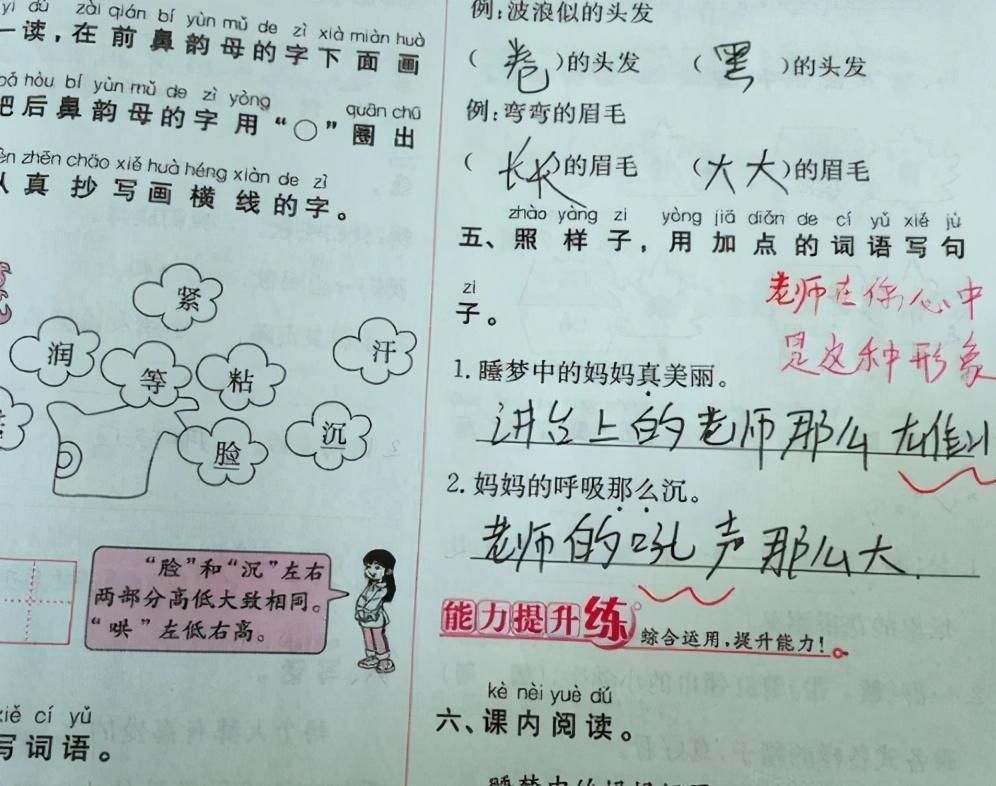 yì dú zài qián bí yùn mǔ de zì xià miàn huà
一读,在前鼻韵母的字下面画
bǎ hòu bí yùn mǔ de zì yòng quān chū
把后鼻韵母的字用“○”圈出
rèn zhēn chāo xiě huà héng xiàn de zì
认真抄写画横线的字。
紧
润
等
粘
汗
脸
沉
“脸”和“沉”左右
两部分高低大致相同。
“哄”左低右高。
xiě cí yǔ
写词语。
例:波浪似的头发
(卷)的头发 (黑)的头发
例:弯弯的眉毛
(长长)的眉毛 (大大)的眉毛
zhào yàng zi yòng jiā diǎn de cí yǔ xiě jù
五、照样子,用加点的词语写句
zi
子。
老师在你心中
是这种形象
1.睡梦中的妈妈真美丽。
讲台上的老师那么
2.妈妈的呼吸那么沉。
老师的吼声那么大.
能力提升练 综合运用,提升能力!
kè nèi yuè dú
六、课内阅读。